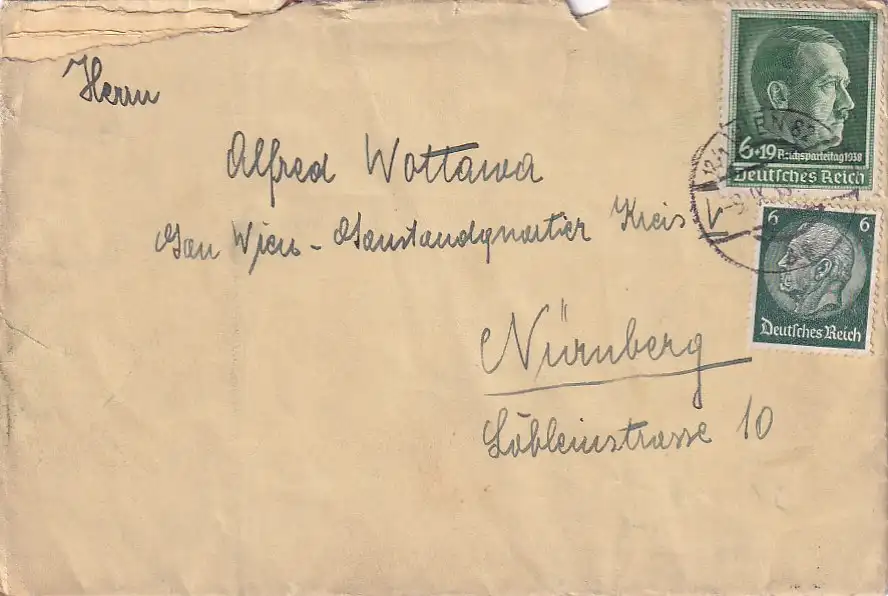 Herrn
Alfred Wottawa
Gau Wien - Gaustandquartier Kreis V
Nürnberg
Löbleinstrasse 10
6+19 Reichsparteitag 1938
Deutsches Reich
EN 82
6 6
Deutsches Reich